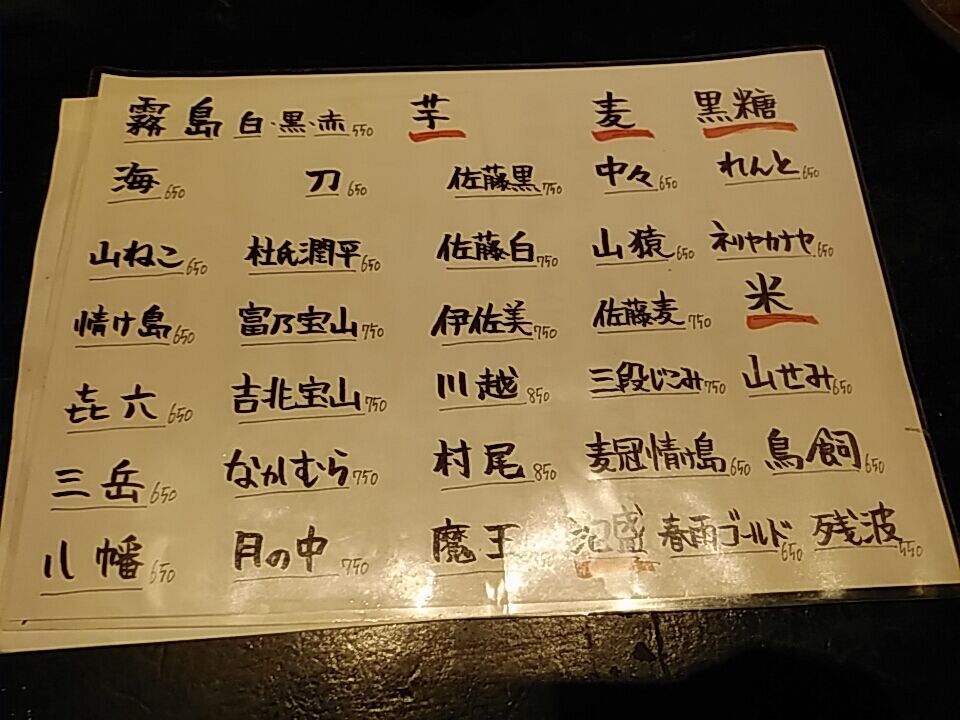 霧島 白・黒・赤 550 芋 麦 黒糖
海 650 刀 650 佐藤黒 750 中々 650 れんと 650
山ねこ 650 杜氏潤平 650 佐藤白 750 山猿 650 ネリヤカナヤ 650
情け島 650 富乃宝山 750 伊佐美 750 佐藤麦 750 米
㐂六 650 吉兆宝山 750 川越 850 三段じこみ 750 山せみ 650
三岳 650 なかむら 750 村尾 850 麦冠情け島 650 鳥飼 650
八幡 650 月の中 750 魔王 泡盛 春雨ゴールド 650 残波 550